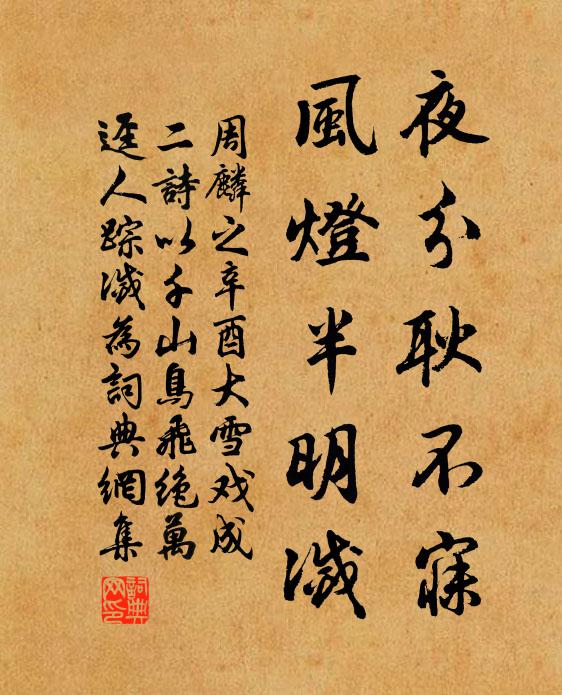 夜分耿不寐
風燈半明滅
周麟之辛酉大雪戏成
二詩以千山鳥飛绝萬
迳人踪滅為詞典網集
詞典网印